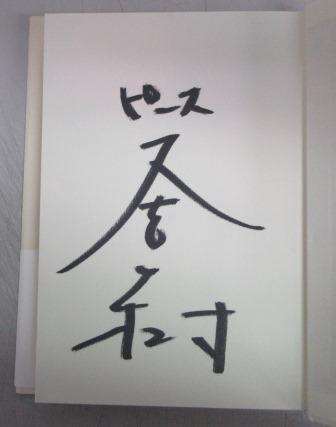 ピース
又吉
樹